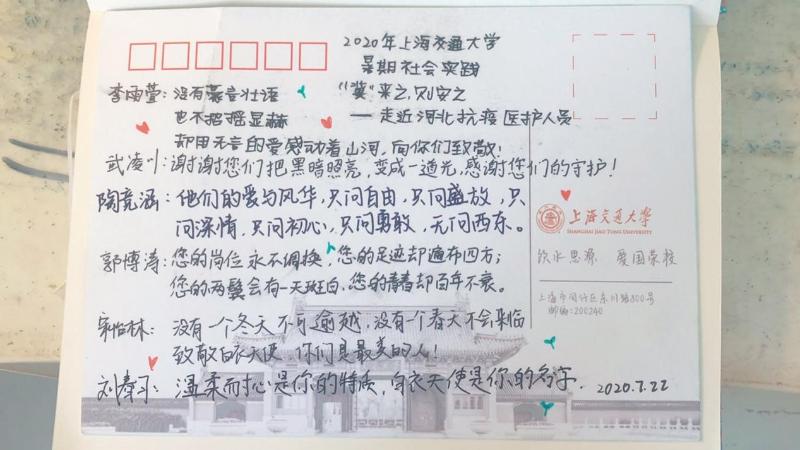 2020年上海交通大学
暑期社会实践
"冀"来之,则安之
——走近河北抗疫医护人员
李雨萱:没有豪言壮语
也不摇摇显赫
却用无言的爱感动着山河,向你们致敬!
武凌川:谢谢您们把黑暗照亮,变成一道光,感谢您们的守护!
陶竞涵:他们的爱与风华,只问自由,只问盛放,只
问深情,只问初心,只问勇敢,无问西东。
郭博涛:您的岗位永不调换,您的足迹却遍布四方;
您的两鬓会有一天斑白,您的青春却百年不衰。
宋怡林:没有一个冬天不可逾越,没有一个春天不会来临
致敬白衣天使,你们是最美的人!
刘春习:温柔而担心是你的特质,白衣天使是你的名字.
2020.7.22
上海交通大学
SHANGHAI JIAO TONG UNIVERSITY
饮水思源 爱国荣校
上海市闵行区东川路800号
邮编:200240